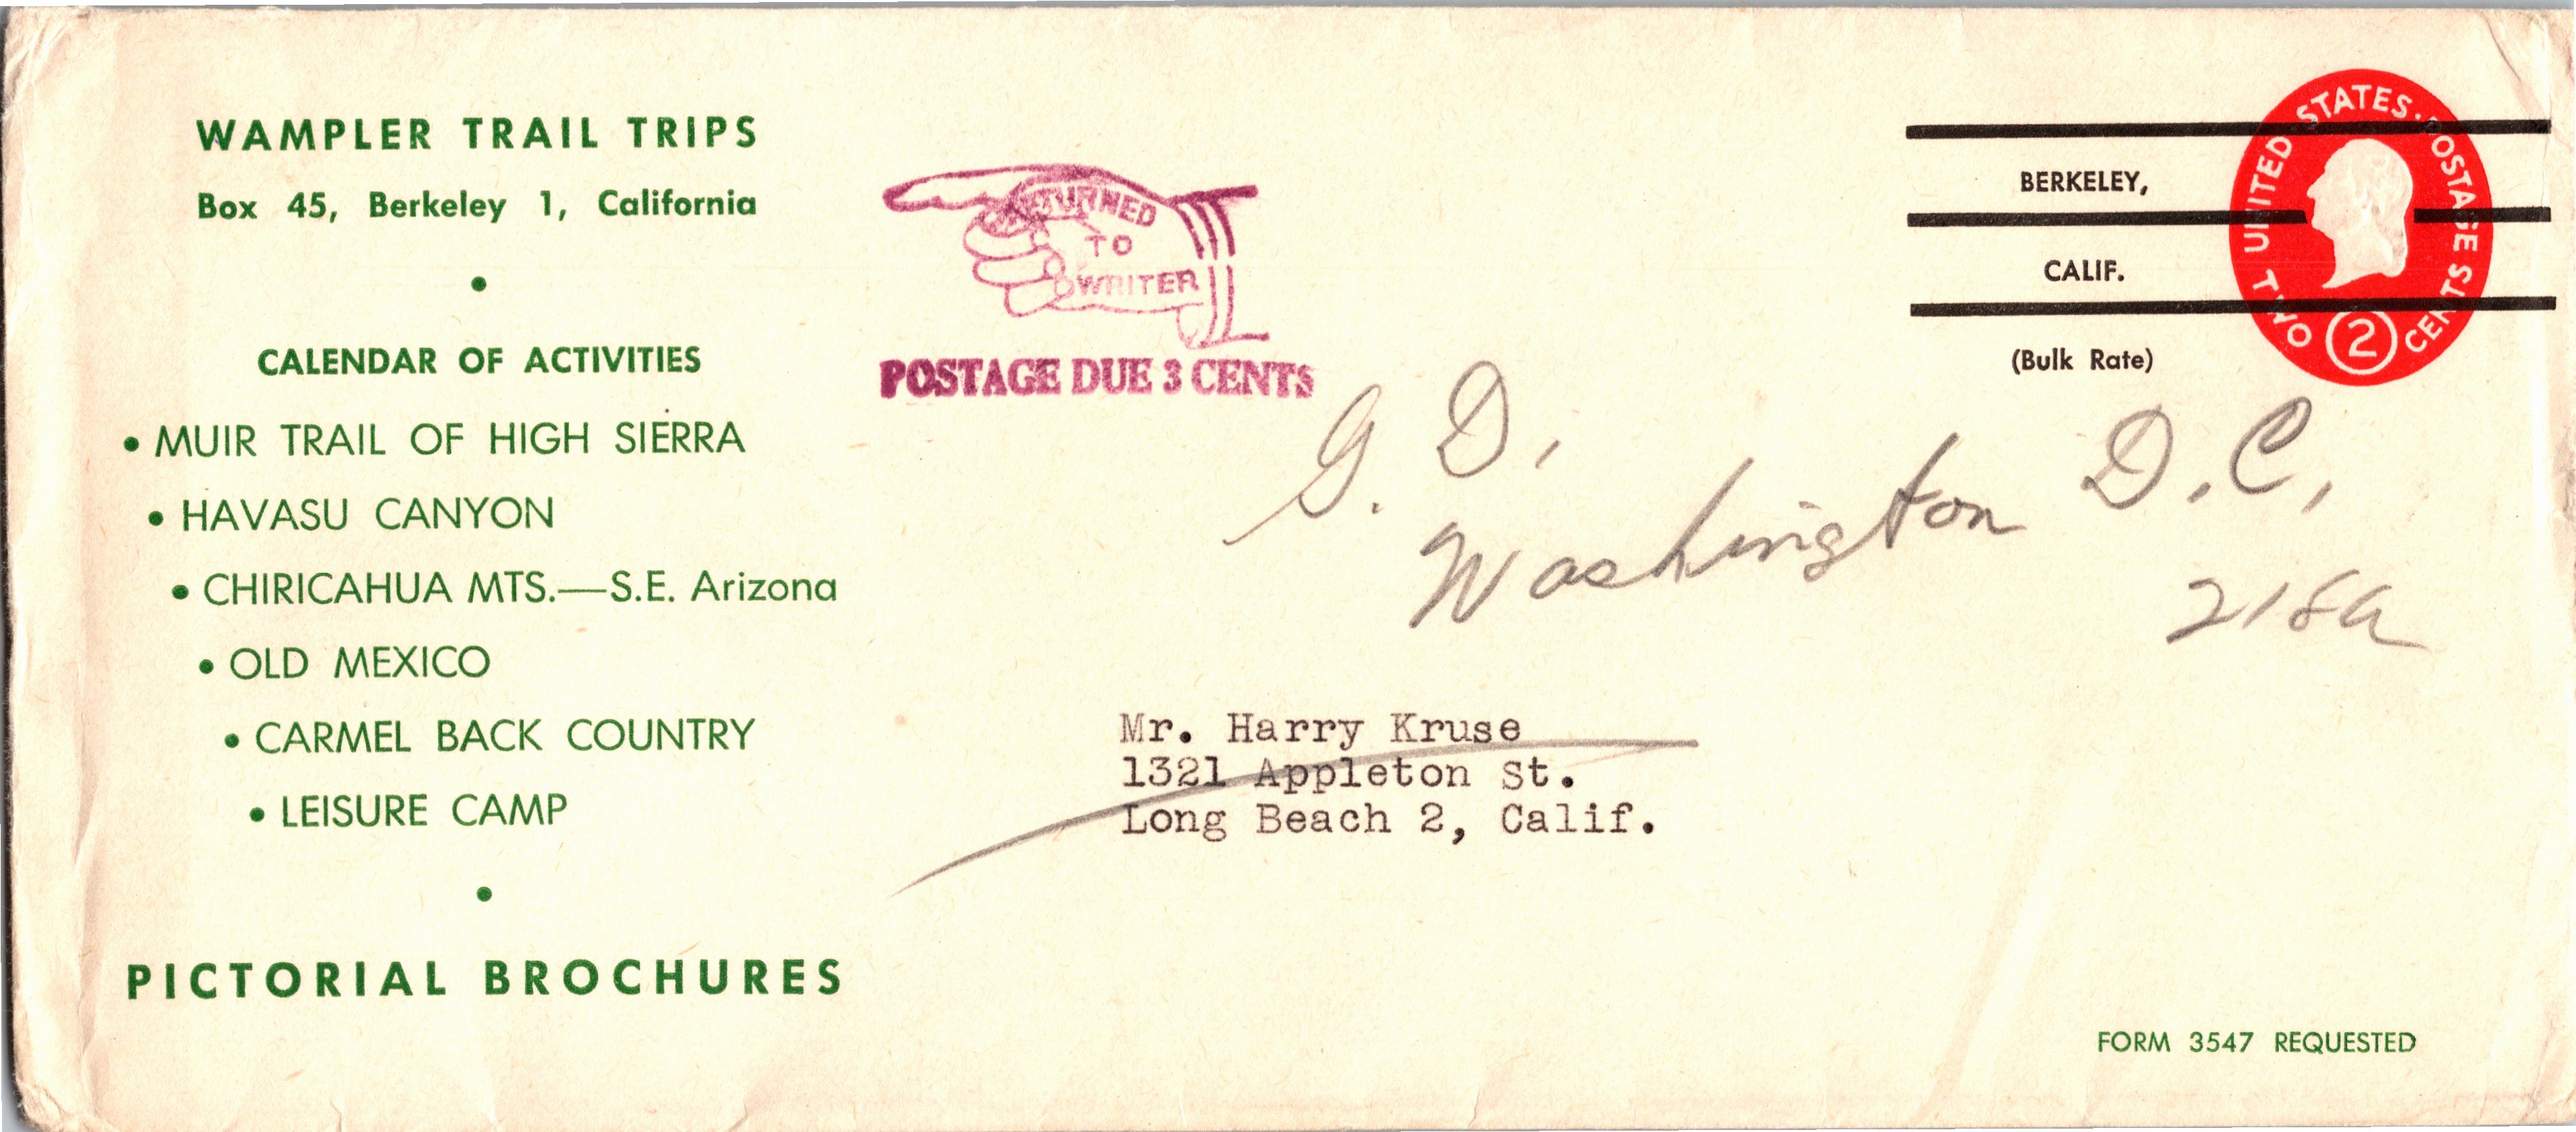 WAMPLER TRAIL TRIPS
Box 45, Berkeley 1, California
CALENDAR OF ACTIVITIES
• MUIR TRAIL OF HIGH SIERRA
• HAVASU CANYON
• CHIRICAHUA MTS.—S.E. Arizona
• OLD MEXICO
• CARMEL BACK COUNTRY
• LEISURE CAMP
PICTORIAL BROCHURES
RETURNED
TO
WRITER
POSTAGE DUE 3 CENTS
BERKELEY,
CALIF.
(Bulk Rate)
UNITED STATES POSTAGE
TWO 2 CENTS
G. D.
Washington D.C.
Mr. Harry Kruse
1321 Appleton St.
Long Beach 2, Calif.
FORM 3547 REQUESTED